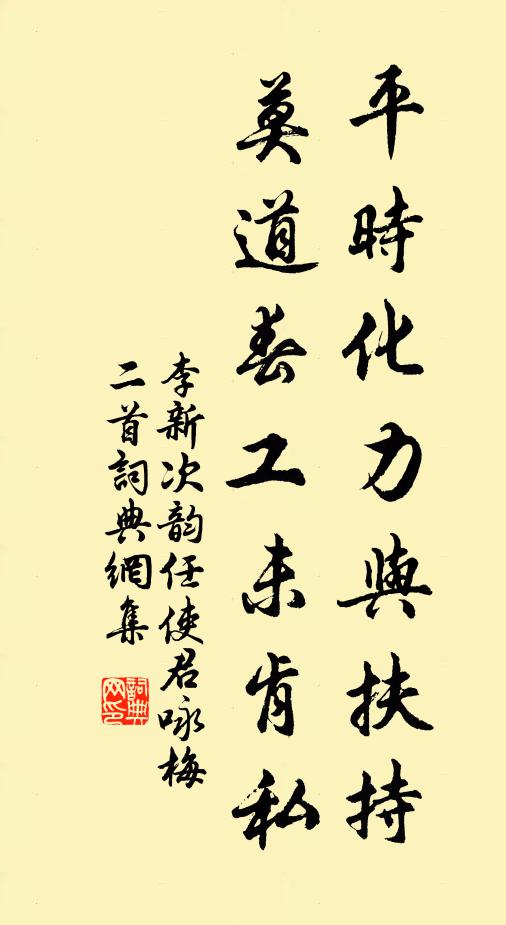 平時化力與扶持
莫道春工未肯私
李新次韵任使君咏梅
二首詞典網集
詞典
网印